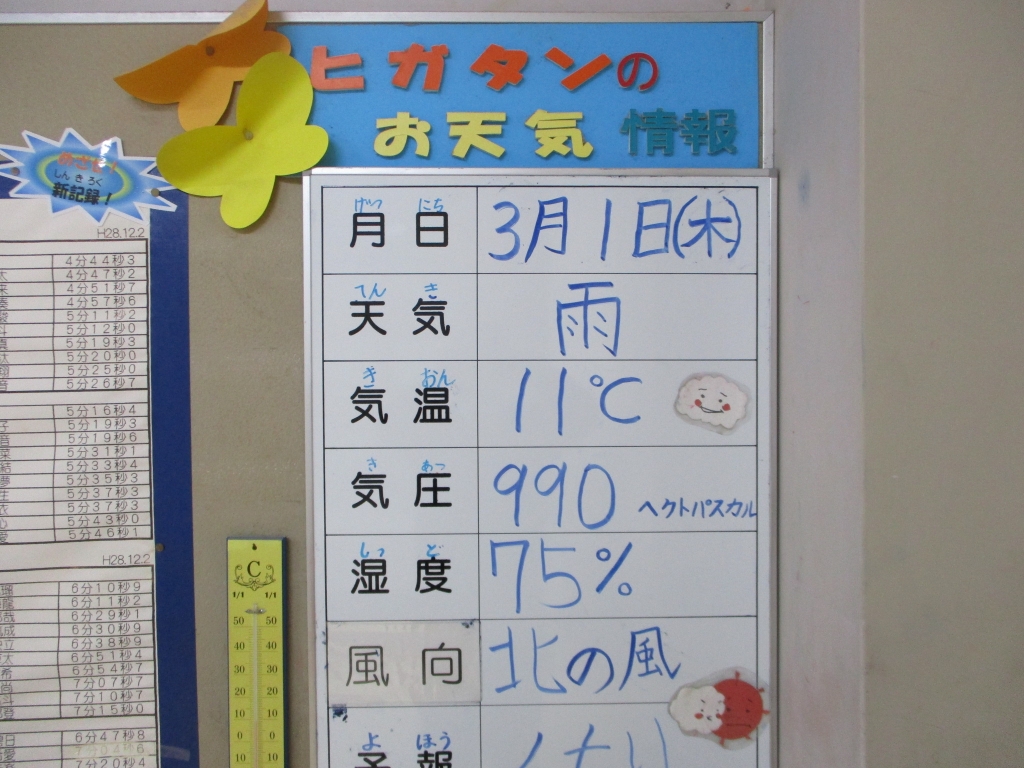 ヒガタンの
お天気 情報
めざせ！
しん き ろく
新記録！
H28.12.2
4分44秒3
4分47秒2
4分51秒7
4分57秒6
5分11秒2
5分12秒0
5分19秒3
5分20秒0
5分25秒0
5分26秒7
5分16秒4
5分19秒3
5分19秒6
5分31秒1
5分33秒4
5分35秒3
5分37秒3
5分37秒3
5分43秒0
5分46秒1
H28.12.2
6分10秒9
6分11秒2
6分29秒1
6分30秒9
6分38秒9
6分51秒4
6分54秒7
7分07秒7
7分10秒7
7分15秒0
6分47秒8
7分04秒6
7分20秒4
C
1/1 1/1
50 50
40 40
30 30
20 20
10 10
0 0
10 10
げつ にち
月日 3月1日(木)
てん き
天気 雨
き おん
気温 11℃
き あつ
気圧 990 ヘクトパスカル
しつ ど
湿度 75%
風向 北の風
よ ほう
予報